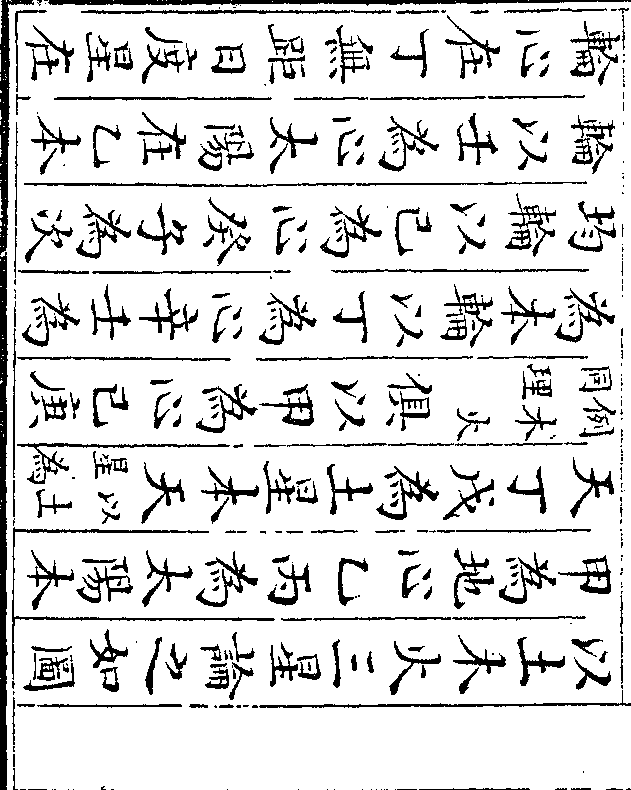 以土木火三星論之如圖
甲為地心乙丙為太陽本
天丁戊為土星本天以土星為
例木火同理俱以甲為心己庚
為本輪以丁為心辛壬為
均輪以己為心癸子為次
輪以壬為心太陽在乙本
輪心在丁無距日度星在